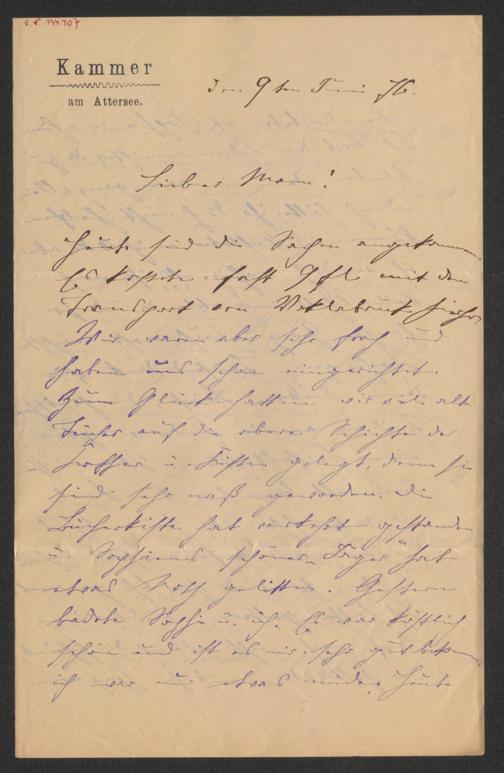 Kammer
am Attersee.
den 9ten Juni 76.
Lieber Mann!
Heute sind die Sachen angekommen
Es kostete fast 9 fl. mit dem
Transport von Vöklabruk hieher
Wir waren aber sehr froh und
haben uns schon eingerichtet.
Zum Glück hatten wir viele alte
Tücher auf die obere Schichte der
Koffer u. Kisten gelegt, denn sie
sind sehr naß geworden. Die
Bücherkiste hat verkehrt gestanden
u. Sophiens schöner Jäger hat
etwas Noth gelitten. Gestern
badete Sophie u. ich. Es war köstlich
schön und ist es mir sehr gut bekommen,
ich war nur etwas müde. Heute